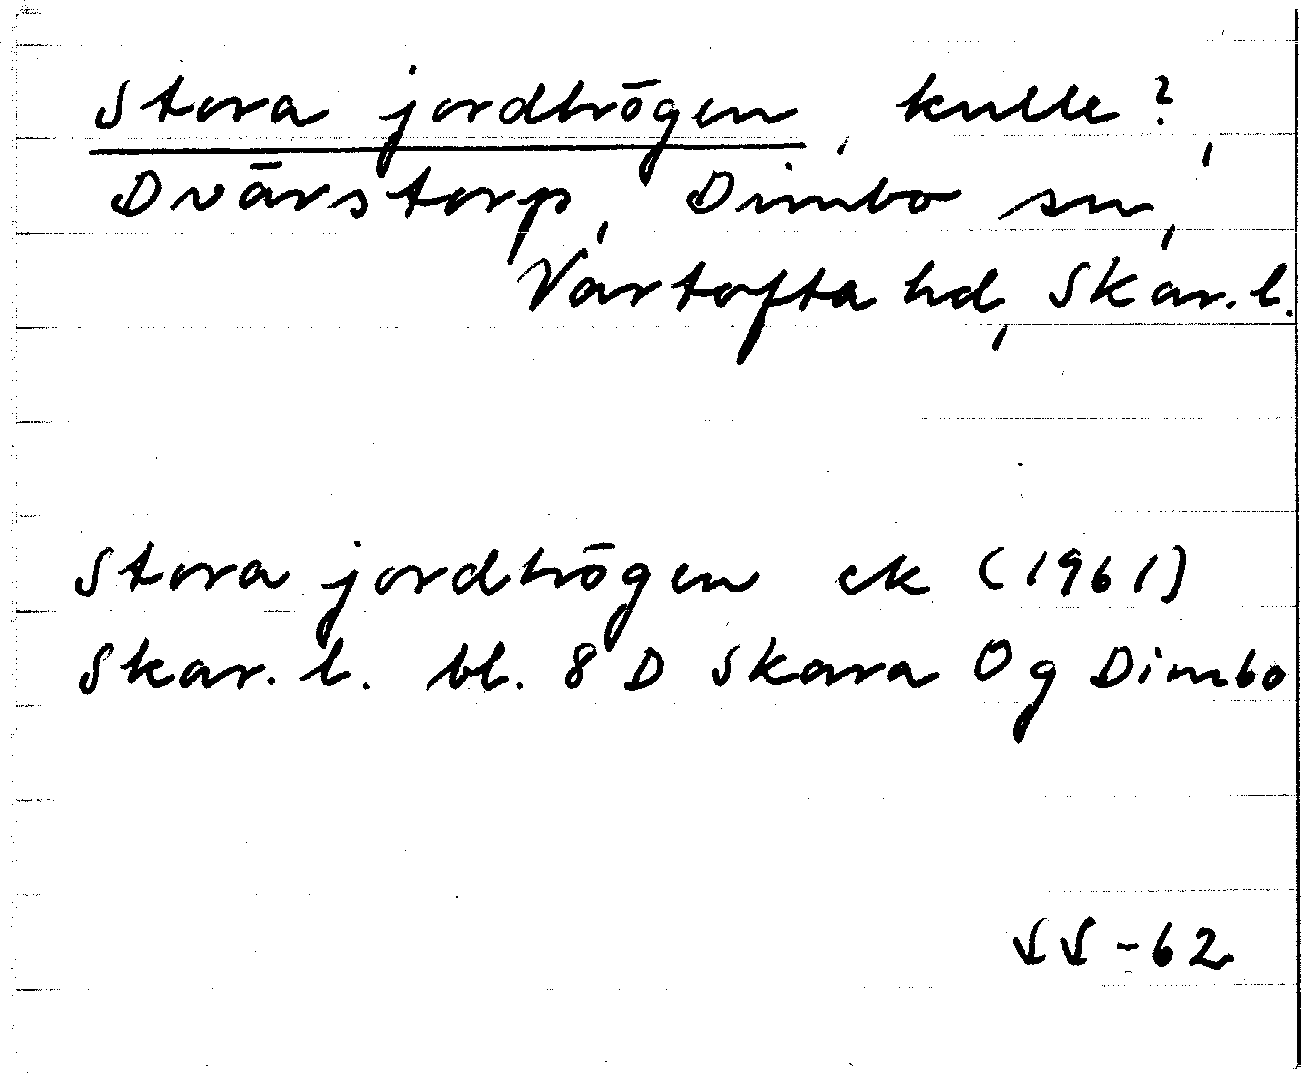 Stora jordhögen, kulle?,
Dvärstorp, Dimbo sn,
Vartofta hd, Skar. l.
Stora jordhögen ek (1961)
Skar. l. bl. 8 D Skara 0g Dimbo
SS -62